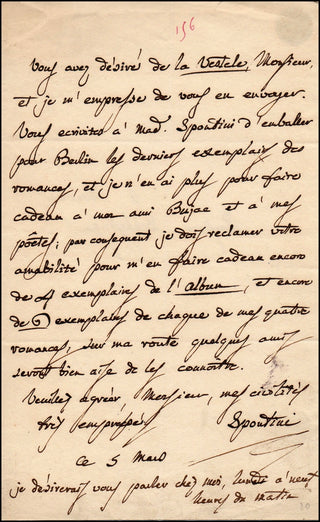 156
Vous avez désiré de la Vestale, Monsieur,
et je m'empresse de vous en envoyer.
Vous écrivites à Mad. Spontini d'emballer
pour Berlin les derniers exemplaires des
romances, et je n'en ai plus pour faire
cadeau à mon ami Bujac et à mes
poêtes; par consequent je dois reclamer votre
amabilité pour m'en faire cadeau encore
de 4 exemplaires de l'album, et encore
de 6 exemplaires de chaque de mes quatre
romances, sur ma route quelques amis
seront bien aise de les connoitre.
Veuillez agréer Monsieur, mes civilités
très empressées
Spontini
Ce 5 Mars
je désirerais vous parler chez moi, lundi à neuf
heures du matin